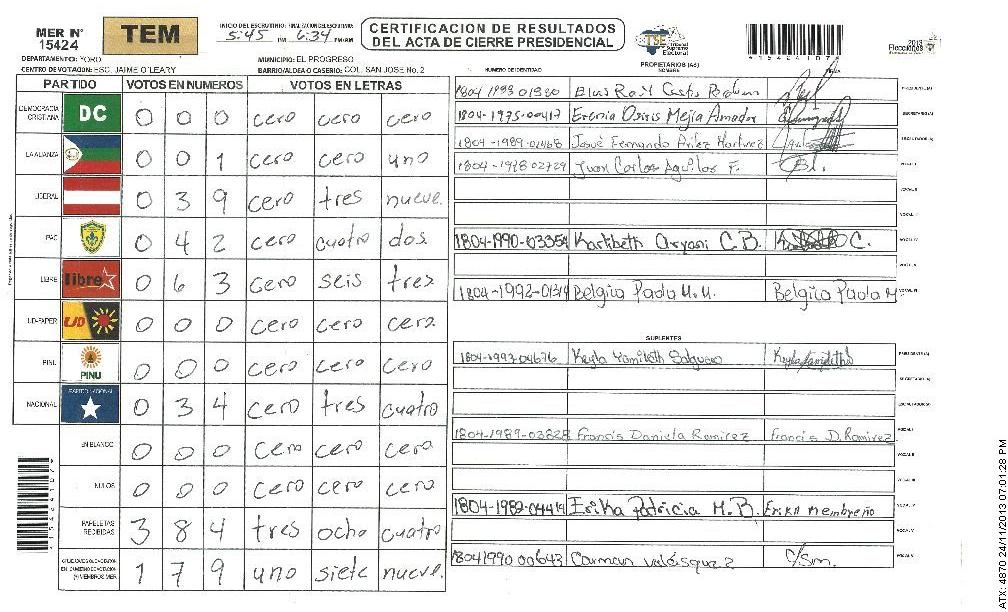 MER N° 15424
TEM
INICIO DEL ESCRUTINIO: FINALIZACION DEL ESCRUTINIO:
5:45 PM 6:34 PM/AM
CERTIFICACION DE RESULTADOS
DEL ACTA DE CIERRE PRESIDENCIAL
TSE Tribunal Supremo Electoral
2013 Elecciones
DEPARTAMENTO: YORO
MUNICIPIO: EL PROGRESO
CENTRO DE VOTACION: ESC. JAIME O'LEARY
BARRIO/ALDEA O CASERIO: COL. SAN JOSE No. 2
PARTIDO VOTOS EN NUMEROS VOTOS EN LETRAS
DEMOCRACIA CRISTIANA DC 0 0 0 cero cero cero
LA ALIANZA 0 0 1 cero cero uno
LIBERAL 0 3 9 cero tres nueve.
PAC 0 4 2 cero cuatro dos.
LIBRE libre 0 6 3 cero seis tres
UD-FAPER UD 0 0 0 cero cero cero.
PINU PINU 0 0 0 cero cero cero.
NACIONAL PARTIDO NACIONAL 0 3 4 cero tres cuatro
EN BLANCO 0 0 0 cero cero cero.
NULOS 0 0 0 cero cero cero.
PAPELETAS RECIBIDAS 3 8 4 tres ocho cuatro
1 7 9 uno siete nueve.
NUMERO DE IDENTIDAD PROPIETARIOS (AS) NOMBRE FIRMA
1804 1993 01980 PRESIDENTE (A)
1804-1975-00417 Erenia Osiris Mejia Amador SECRETARIO (A)
1804-1989-01468 Josué Fernando Artez Martinez ESCRUTADOR (A)
1804-1978 02729 Juan Carlos Aguilar F. VOCAL I
VOCAL II
VOCAL III
1804-1990-03354 Karlibeth Aryani C.B. VOCAL IV
VOCAL V
1804-1992-01314 Belgica Paola M.M. Belgica Paola M VOCAL VI
SUPLENTES
1804-1993-04676 Keyla Yamileth Salguero PRESIDENTE (A)
SECRETARIO (A)
ESCRUTADOR (A)
1804-1989-03828 Francis Daniela Ramirez Francis D. Ramirez VOCAL I
VOCAL II
VOCAL III
1804-1982-04414 Erika Patricia M.B. Erika Membreño VOCAL IV
VOCAL V
1804 1990 00643 Carmen Velásquez
ATX: 4870 24/11/2013 07:01:28 PM